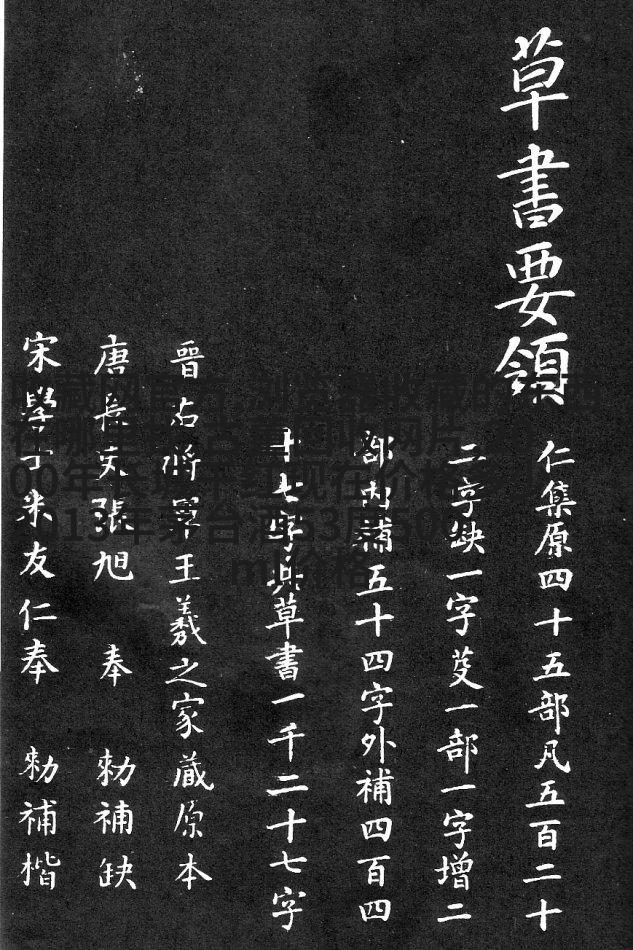 草書要領
仁集原四十五部凡五百二十
二字缺一字芟一部一字增二
部內補五十四字外補四百四
十七字共草書一千二十七字
晉右將軍王羲之家藏原本
唐長史張旭 奉 勅補缺
宋學士米友仁奉 勅補楷